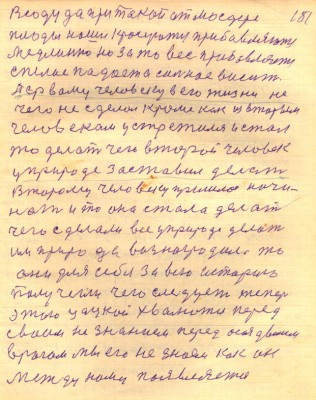 181
Всюду да при такой атмосфере
плоды наши крохоту прибавляют
медлинно но за то вес прибавляют
спелое падает а сипкое висит.
Первому человеку в его жизни не
чего не сделол кроме как из вторым
человеком устретился и стал
то делат чего второй человек
у природе заставил делат
Второму человеку пришлос начи-
нат и то она стала делат
чего сделали все у природе делат
им природа вознагродила то
они для себя за всю историю
получили чего следует тепер
этою цацкой хвалются перед
своим не знанием перед
врагом мы его не знаем как он
между нами появляется